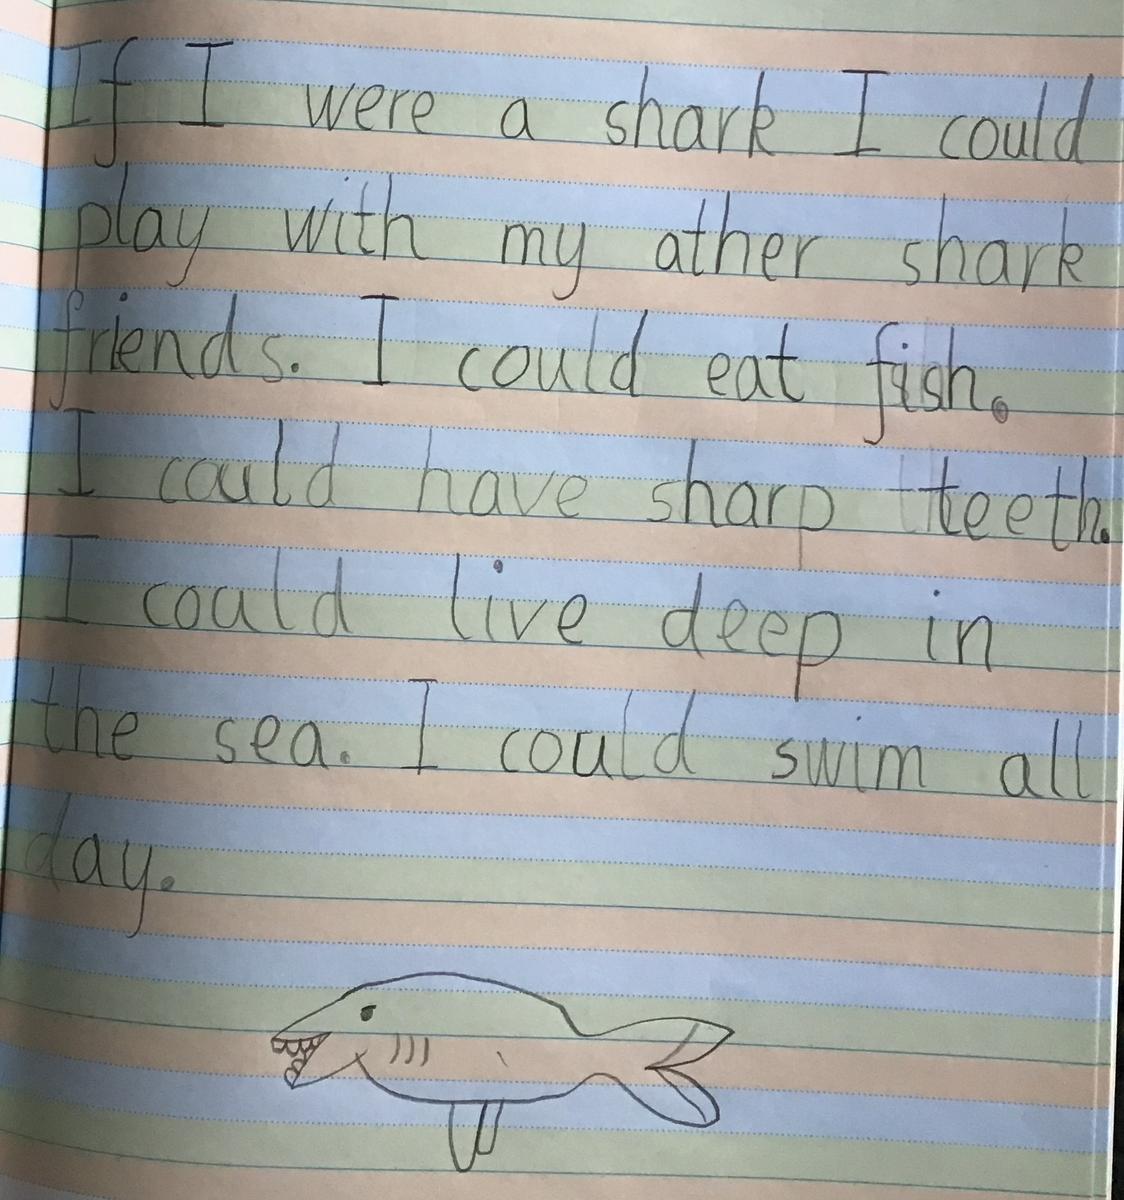 If I were a shark I could
play with my ather shark
friends. I could eat fish.
I could have sharp teeth.
I could live deep in
the sea. I could swim all
day.